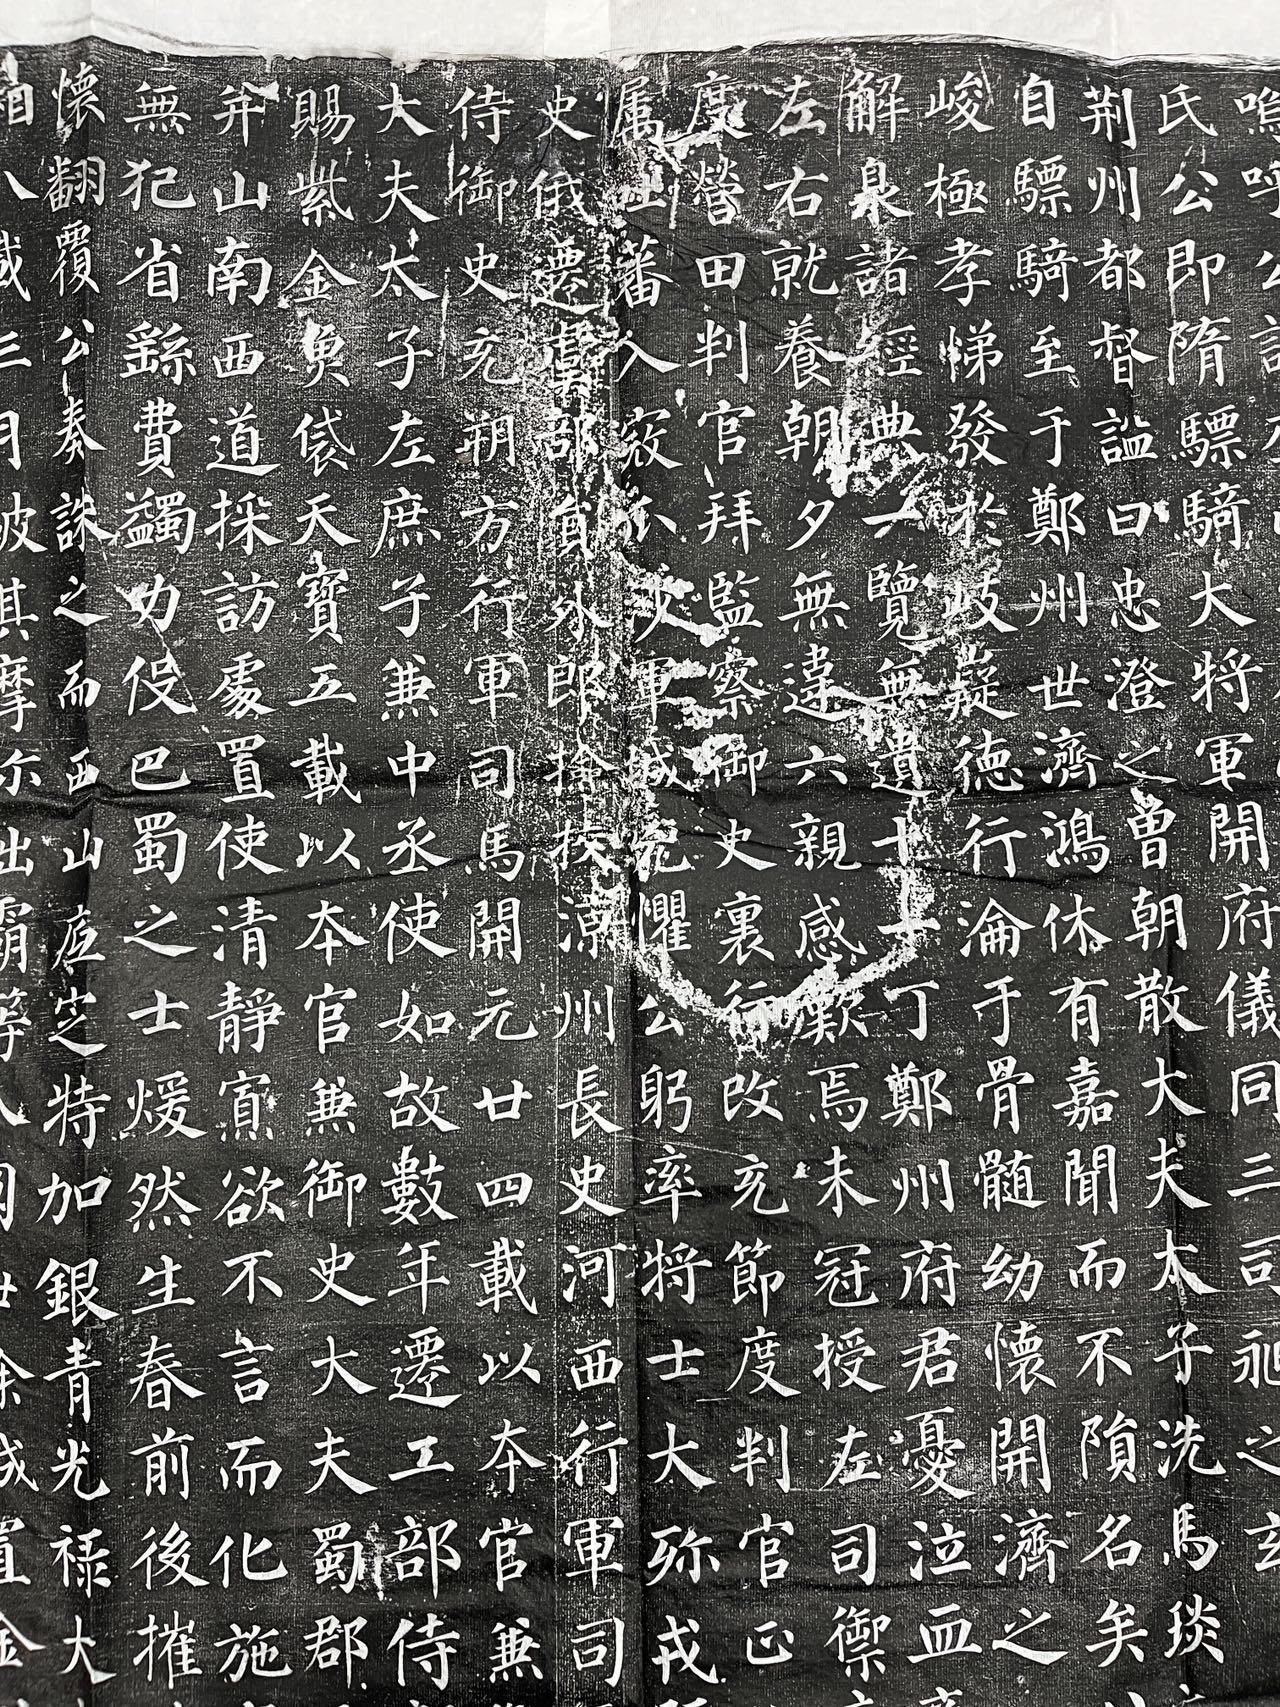 嗚呼公諱
氏公即隋驃騎大將軍開府儀同三司𨑳之玄
荆州都督謚曰忠澄之曾朝散大夫太子洗馬琰
自驃騎至于鄭州世濟鴻休有嘉聞而不隕名矣
峻極孝悌發於岐嶷德行淪于骨髓幼懷開濟之
解泉諸經典一覽無遺十上丁鄭州府君憂泣血
左右就養朝夕無違六親感歎焉未冠授左司禦
度營田判官拜監察御史裏行改充節度判官正
属吐蕃入寇公文軍城兇懼公躬率將士大殄戎
史俄遷虞部員外郎撿挍涼州長史河西行軍司
侍御史充朔方行軍司馬開元廿四載以本官兼
大夫太子左庶子兼中丞使如故數年遷工部侍
賜紫金魚袋天寶五載以本官兼御史大夫蜀郡
弁山南西道採訪處置使清靜賔欲不言而化施
無犯省繇費蠲力役巴蜀之士煖然生春前後摧
懷翻覆公奏誅之而西山底定特加銀青光禄大
相八載三月破其摩尔出霸等八月